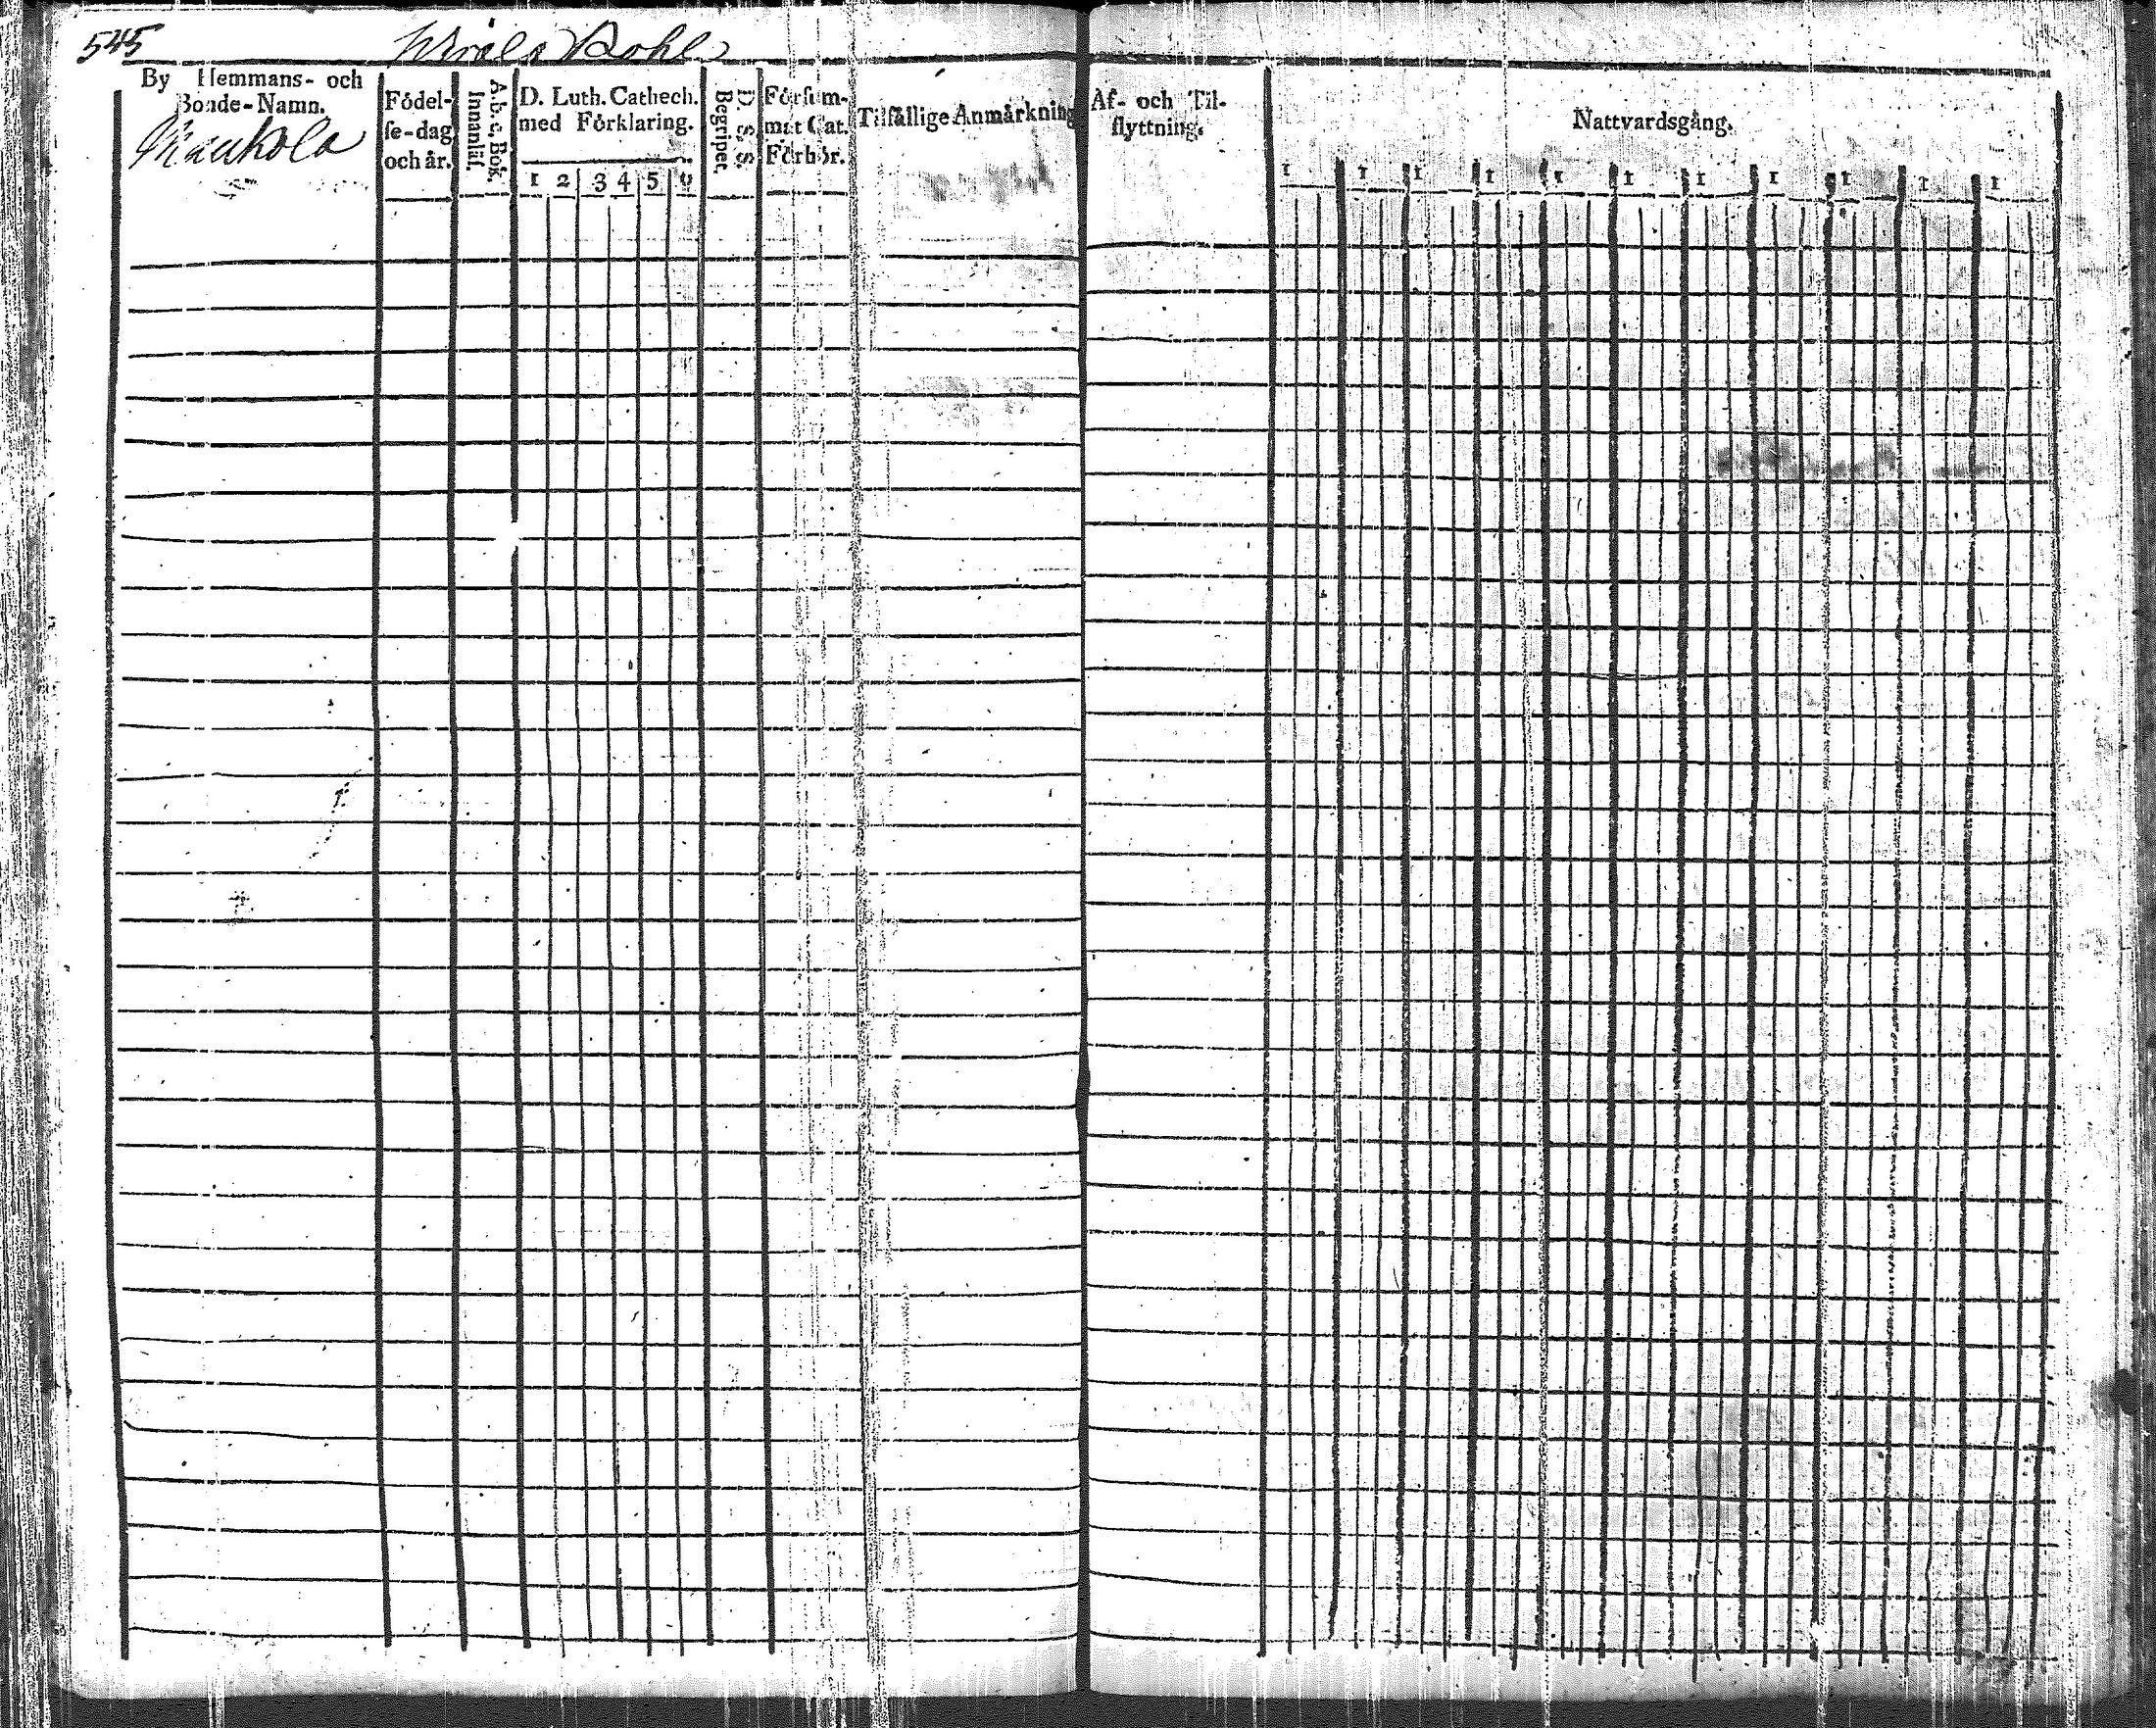 545
By Hemmans- och
Bonde-Namn.
Födel-
se-dag
och år.
A. b. c. Bok.
Innanläs.
D. Luth. Cathech.
med Förklaring.
1 2 3 4 5 6
D. S. S.
Begripet.
Försum-
mat Cat.
Förhör.
Tilfällige Anmärkning
Af- och Til-
flyttning.
Nattvardsgång.
1 1 1 1 1 1 1 1 1 1 1